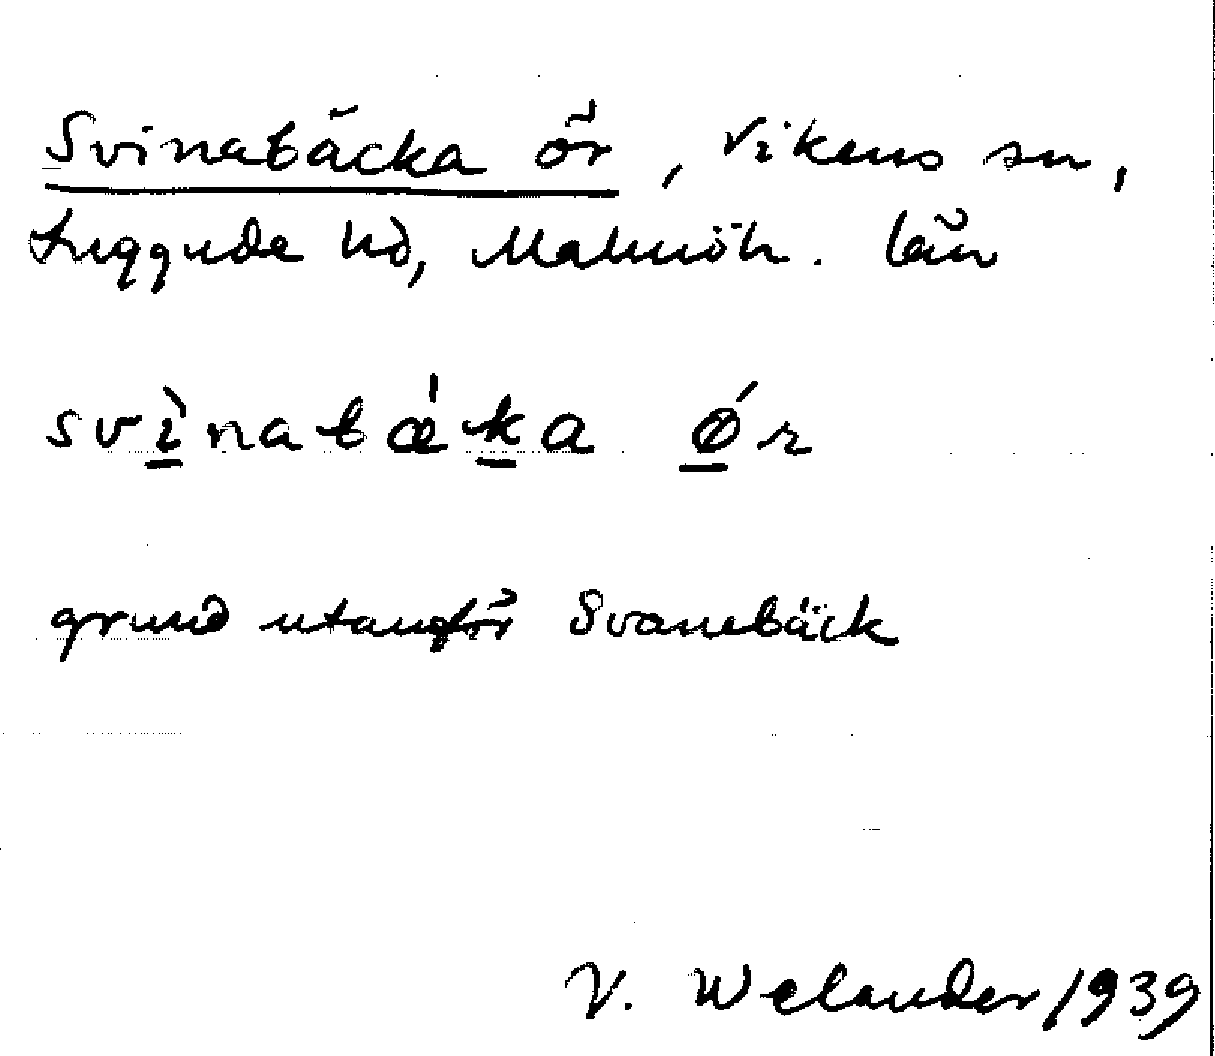 Svinabäcka ör, Vikens sn,
Luggude hd, Malmöh. län
svì̱nabǽḵa ǿ̱r
grund utanför Svanebäck
V. Welander 1939